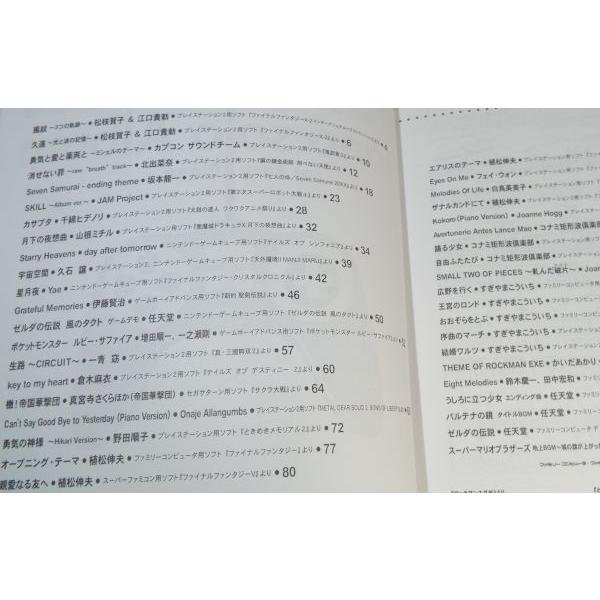 風紋 〜3つの軌跡〜 ● 松枝賀子 & 江口貴勅 ● プレイステーション2用ソフト『ファイナルファンタジーX-2
久遠 〜光と波の記憶〜 ● 松枝賀子 & 江口貴勅 ● プレイステーション2用ソフト『ファイナルファンタジーX-2』より ● 6
勇気と愛と薬莢と 〜ミシェルのテーマ〜 ● カプコン サウンドチーム ● プレイステーション2用ソフト より ● 10
消せない罪 〜raw "breath" track〜 ● 北出菜奈 ● プレイステーション2用ソフト『鋼の錬金術師 翔べない天使』より ● 12
Seven Samurai - ending theme ● 坂本龍一 ● プレイステーション2用ソフト『七人の侍/Seven Samurai 20XX』より ● 18
SKILL 〜Album ver.〜 ● JAM Project ● プレイステーション2用ソフト『第2次スーパーロボット大戦α』より ● 23
カサブタ ● 千綿ヒデノリ ● プレイステーション2用ソフト『太鼓の達人 ワクワクアニメ祭り』より ● 28
月下の夜想曲 ● 山根ミチル ● プレイステーション用ソフト『悪魔城ドラキュラX 月下の夜想曲』より ● 32
Starry Heavens ● day after tomorrow ● ニンテンドーゲームキューブ用ソフト『テイルズ オブ シンフォニア』より ● 34
宇宙空間 ● 久石 譲 ● プレイステーション2、ニンテンドーゲームキューブ用ソフト『天外魔境II MANJI MARU』より ● 39
星月夜 ● Yae ● ニンテンドーゲームキューブ用ソフト『ファイナルファンタジー・クリスタルクロニクル』より ● 42
Grateful Memories ● 伊藤賢治 ● ゲームボーイアドバンス用ソフト『新約 聖剣伝説』より ● 46
ゼルダの伝説 風のタクト ゲームデモ ● 任天堂 ● ニンテンドーゲームキューブ用ソフト『ゼルダの伝説 風のタクト』より ● 50
ポケットモンスター ルビー・サファイア ● 増田順一、一之瀬剛 ● ゲームボーイアドバンス用ソフト『ポケットモンスター ルビー・サファイア』より
生路 〜CIRCUIT〜 ● 一青 窈 ● プレイステーション2用ソフト『真・三國無双3』より ● 57
key to my heart ● 倉木麻衣 ● プレイステーション2用ソフト『テイルズ オブ デスティニー 2』より ● 60
檄!帝国華撃団 ● 真宮寺さくらほか (帝国華撃団) ● セガサターン用ソフト『サクラ大戦』より ● 64
Can't Say Good Bye to Yesterday (Piano Version) ● Onaje Allangumbs ● プレイステーション2用ソフト『METAL GEAR SOLID 2
勇気の神様 〜Hikari Version〜 ● 野田順子 ● プレイステーション用ソフト『ときめきメモリアル2』より ● 72
オープニング・テーマ ● 植松伸夫 ● ファミリーコンピュータ用ソフト『ファイナルファンタジー』より ● 77
親愛なる友へ ● 植松伸夫 ● スーパーファミコン用ソフト『ファイナルファンタジーV』より ● 80
エアリスのテーマ ● 植松伸夫 ● プレイステーション用ソフト
Eyes On Me ● フェイ・ウォン ● プレイステーション用ソフト
Melodies Of Life ● 白鳥英美子 ● プレイステーション用ソフト
ザナルカンドにて ● 植松伸夫 ● プレイステーション2用
Kokoro (Piano Version) ● Joanne Hogg ● プレイス
Avertuneiro Antes Lance Mao ● プレイステーション
踊る少女 ● コナミ矩形波倶楽部 ● プレイステーション
自由ふたたび ● コナミ矩形波倶楽部 ● プレイステ
SMALL TWO OF PIECES 〜軋んだ破片〜 ● Joan
広野を行く ● すぎやまこういち ● ファミリーコンピ
王宮のロンド ● すぎやまこういち ● ファミリーコン
おおぞらをとぶ ● すぎやまこういち ● ファミリー
序曲のマーチ ● すぎやまこういち ● ファミリーコン
結婚ワルツ ● すぎやまこういち ● プレイステーショ
THEME OF ROCKMAN EXE ● かいだあかり
Eight Melodies ● 鈴木慶一、田中宏和 ● ファミリー
うしろに立つ少女 エンディング曲 ● 任天堂 ● ファミ
パルテナの鏡 タイトルBGM ● 任天堂 ● ファミリー
ゼルダの伝説 ● 任天堂 ● ファミリーコンピュータ
スーパーマリオブラザーズ 地上BGM〜城の旗が上がった